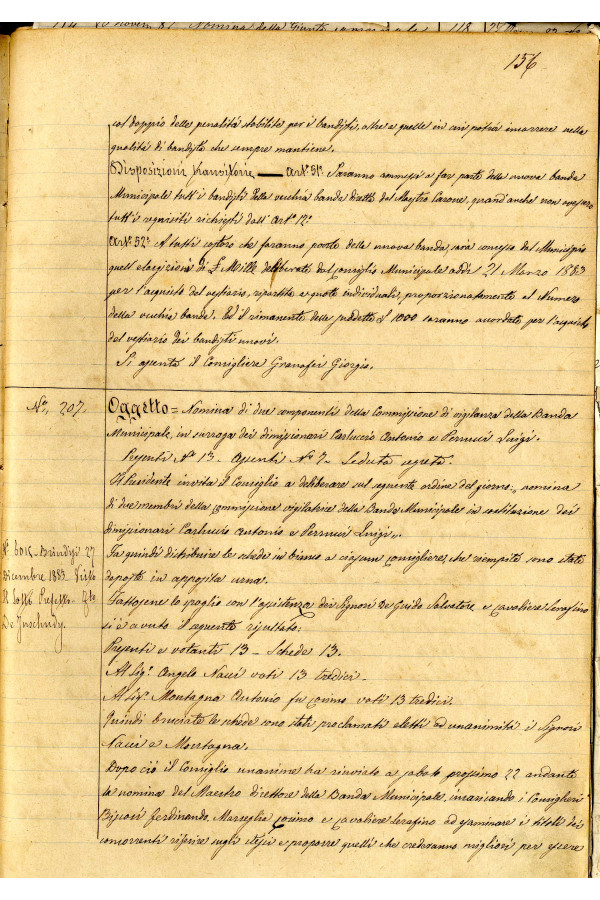 156
col doppio delle penalità stabilite per i bandisti, oltre a quelle in cui potrà incorrere nella
qualità di bandisti che sempre mantiene.
Disposizioni transitorie — Art.° 51.° Saranno ammessi a far parte della nuova banda
Municipale tutti i bandisti della vecchia banda diretta dal Maestro Carone, quand'anche non
tutti i requisiti richiesti dall'Art.° 12.°
Art.° 52.° A tutti coloro che faranno parte della nuova banda, sarà concesso dal Municipio
di £ Mille deliberate dal Consiglio Municipale addì 21 Marzo 1883
per l'acquisto del vestiario, ripartite a quote individuali, proporzionatamente al Numero
della vecchia banda. Ed il rimanente delle suddette £ 1000 saranno accordate per l'acquisto
del vestiario dei bandisti nuovi.
Si assenta il Consigliere Granafei Giorgio.
N.° 207.
Oggetto = Nomina di due componenti della Commissione di vigilanza della Banda
Municipale, in surroga dei dimissionari Carluccio Antonio e Perrucci Luigi.
Presenti N.° 13 - Assenti N.° 7 - Seduta segreta.
Il Presidente invita il Consiglio a deliberare sul seguente ordine del giorno: „ nomina
di due membri della commissione vigilatrice della Banda Municipale in sostituzione dei
dimissionari Carluccio Antonio e Perrucci Luigi „.
Fa quindi distribuire le schede in bianco a ciascun consigliere, che riempite sono state
deposte in apposita urna.
Fattosene lo spoglio con l'assistenza dei Signori De Guido Salvatore e Cavaliere Serafino
si è avuto il seguente risultato:
Presenti e votanti 13 - Schede 13.
Al Sig.r Angelo Nacci voti 13 tredici.
Al Sig.r Montagna Antonio fu Cosimo voti 13 tredici.
Quindi bruciate le schede sono stati proclamati eletti ad unanimità i Signori
Nacci e Montagna.
Dopo ciò il Consiglio unanime ha rinviato a sabato prossimo 22 andante
la nomina del Maestro direttore della Banda Municipale, incaricando i Consiglieri
Ferdinando, Cosimo e Cavaliere Serafino ad esaminare i titoli dei
concorrenti riferire sugli stessi e proporre quelli che crederanno migliori per essere
Brindisi 27
Dicembre 1883. Visto
Prefetto